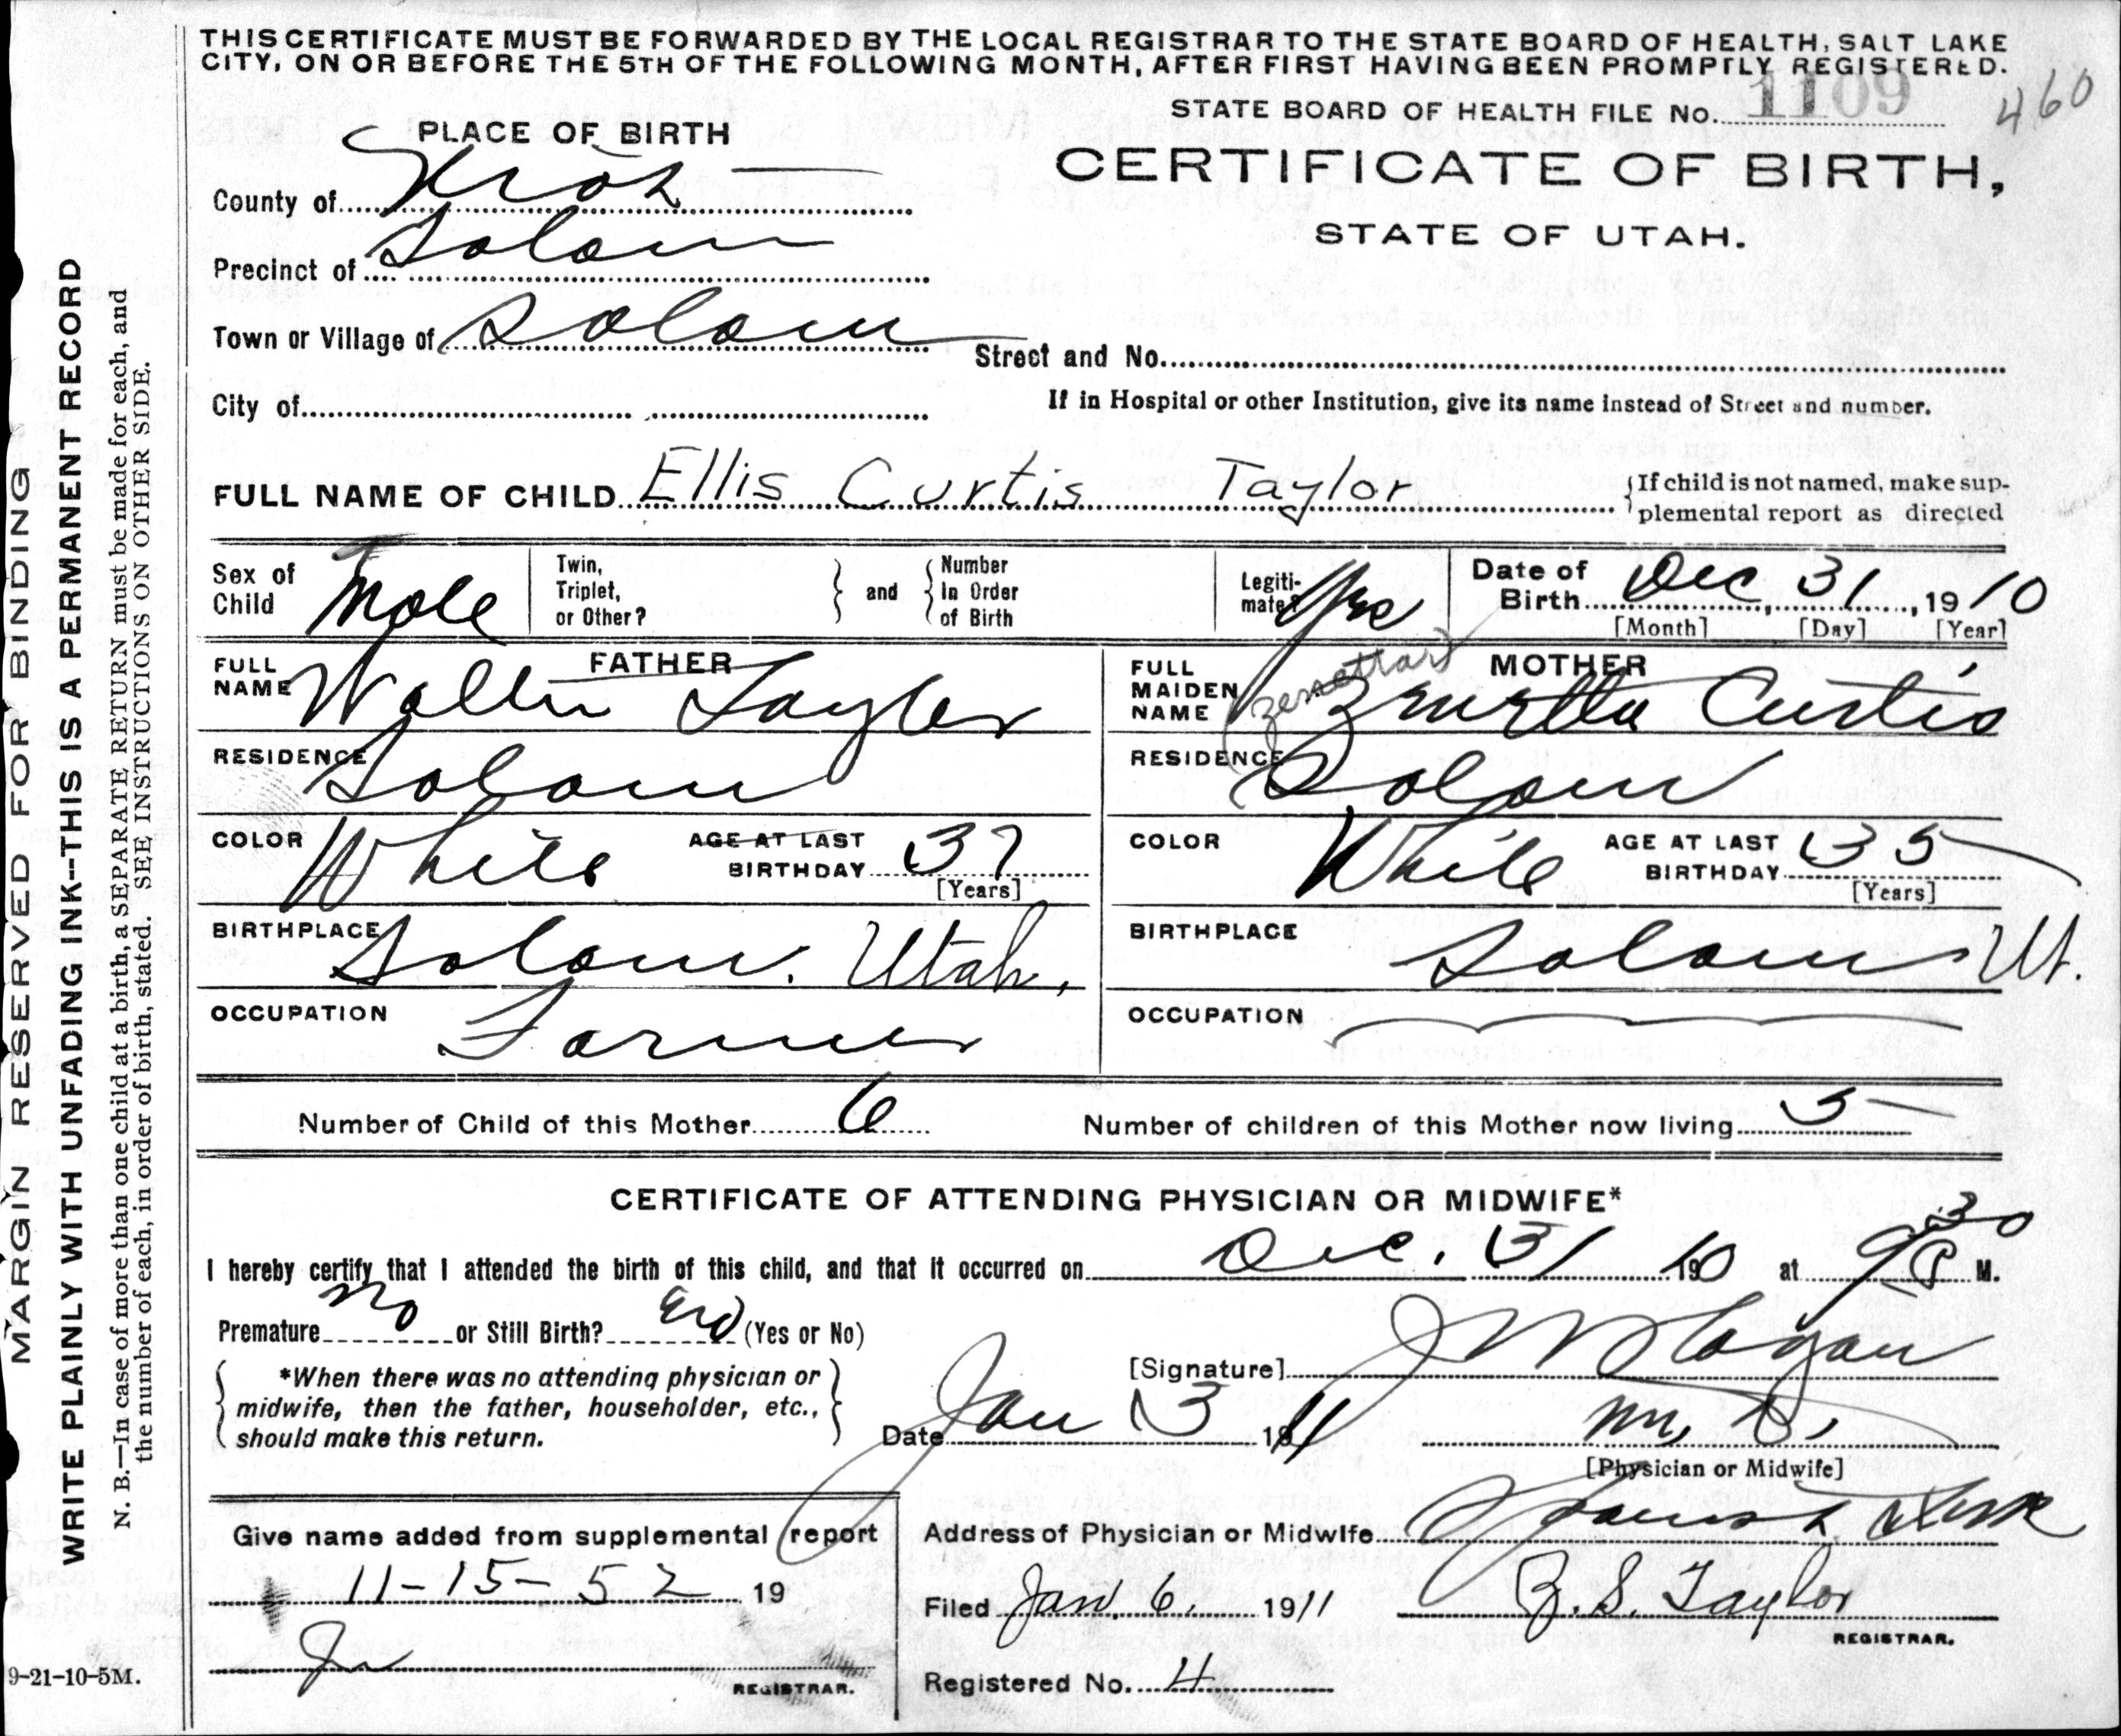 THIS CERTIFICATE MUST BE FORWARDED BY THE LOCAL REGISTRAR TO THE STATE BOARD OF HEALTH, SALT LAKE
CITY, ON OR BEFORE THE 5TH OF THE FOLLOWING MONTH, AFTER FIRST HAVING BEEN PROMPTLY REGISTERED.
STATE BOARD OF HEALTH FILE No. 1109 460
PLACE OF BIRTH
CERTIFICATE OF BIRTH,
STATE OF UTAH.
County of Utah
Precinct of Salem
Town or Village of Salem
Street and No.
City of
If in Hospital or other Institution, give its name instead of Street and number.
FULL NAME OF CHILD Ellis Curtis Taylor
{If child is not named, make sup-
plemental report as directed
Sex of Child Male
Twin, Triplet, or Other? } and { Number In Order of Birth
Legiti-mate? Yes
Date of Birth Dec 31, 1910
[Month] [Day] [Year]
FATHER
FULL NAME Walter Taylor
RESIDENCE Salem
COLOR White AGE AT LAST BIRTHDAY 37
[Years]
BIRTHPLACE Salem. Utah,
OCCUPATION Farmer
MOTHER
FULL MAIDEN NAME Zenetta Curtis
RESIDENCE Salem
COLOR White AGE AT LAST BIRTHDAY 35
[Years]
BIRTHPLACE Salem Ut.
OCCUPATION
Number of Child of this Mother 6
Number of children of this Mother now living 5
CERTIFICATE OF ATTENDING PHYSICIAN OR MIDWIFE*
I hereby certify that I attended the birth of this child, and that it occurred on Dec. 31 1910 at 9 30 P M.
Premature no or Still Birth? no (Yes or No)
{ *When there was no attending physician or }
midwife, then the father, householder, etc.,
should make this return.
[Signature] J M Hagan
M. D.
[Physician or Midwife]
Date Jan 3 1911
Give name added from supplemental report
11-15-52 19
REGISTRAR.
Address of Physician or Midwife Spanish Fork
Filed Jan. 6, 1911 Z. S. Taylor
REGISTRAR.
Registered No. 4
9-21-10-5M.
MARGIN RESERVED FOR BINDING
WRITE PLAINLY WITH UNFADING INK--THIS IS A PERMANENT RECORD
N. B.—In case of more than one child at a birth, a SEPARATE RETURN must be made for each, and
the number of each, in order of birth, stated. SEE INSTRUCTIONS ON OTHER SIDE.